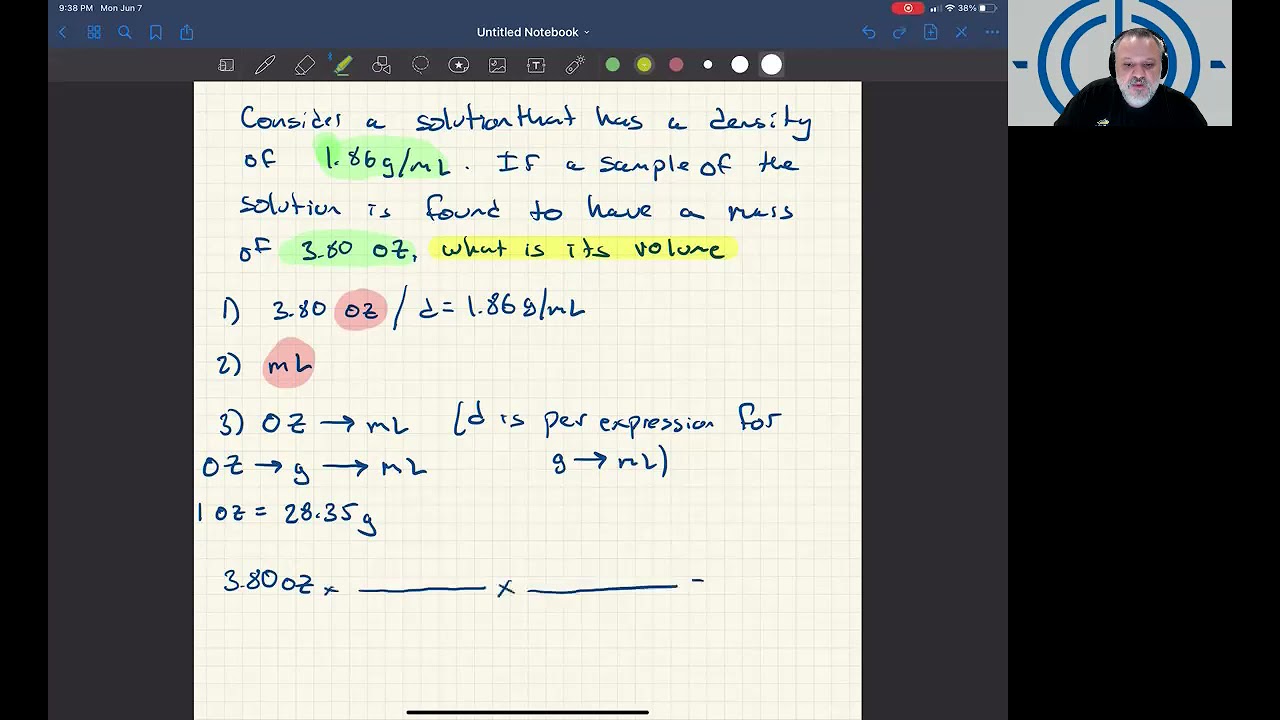 9:38 PM Mon Jun 7
38%
Untitled Notebook
Consider a solution that has a density
of 1.86 g/mL. If a sample of the
solution is found to have a mass
of 3.80 oz, what is its volume
1) 3.80 oz / d = 1.86 g/mL
2) mL
3) oz → mL (d is per expression for
oz → g → mL g → mL)
1 oz = 28.35 g
3.80 oz x ____ x ____ =